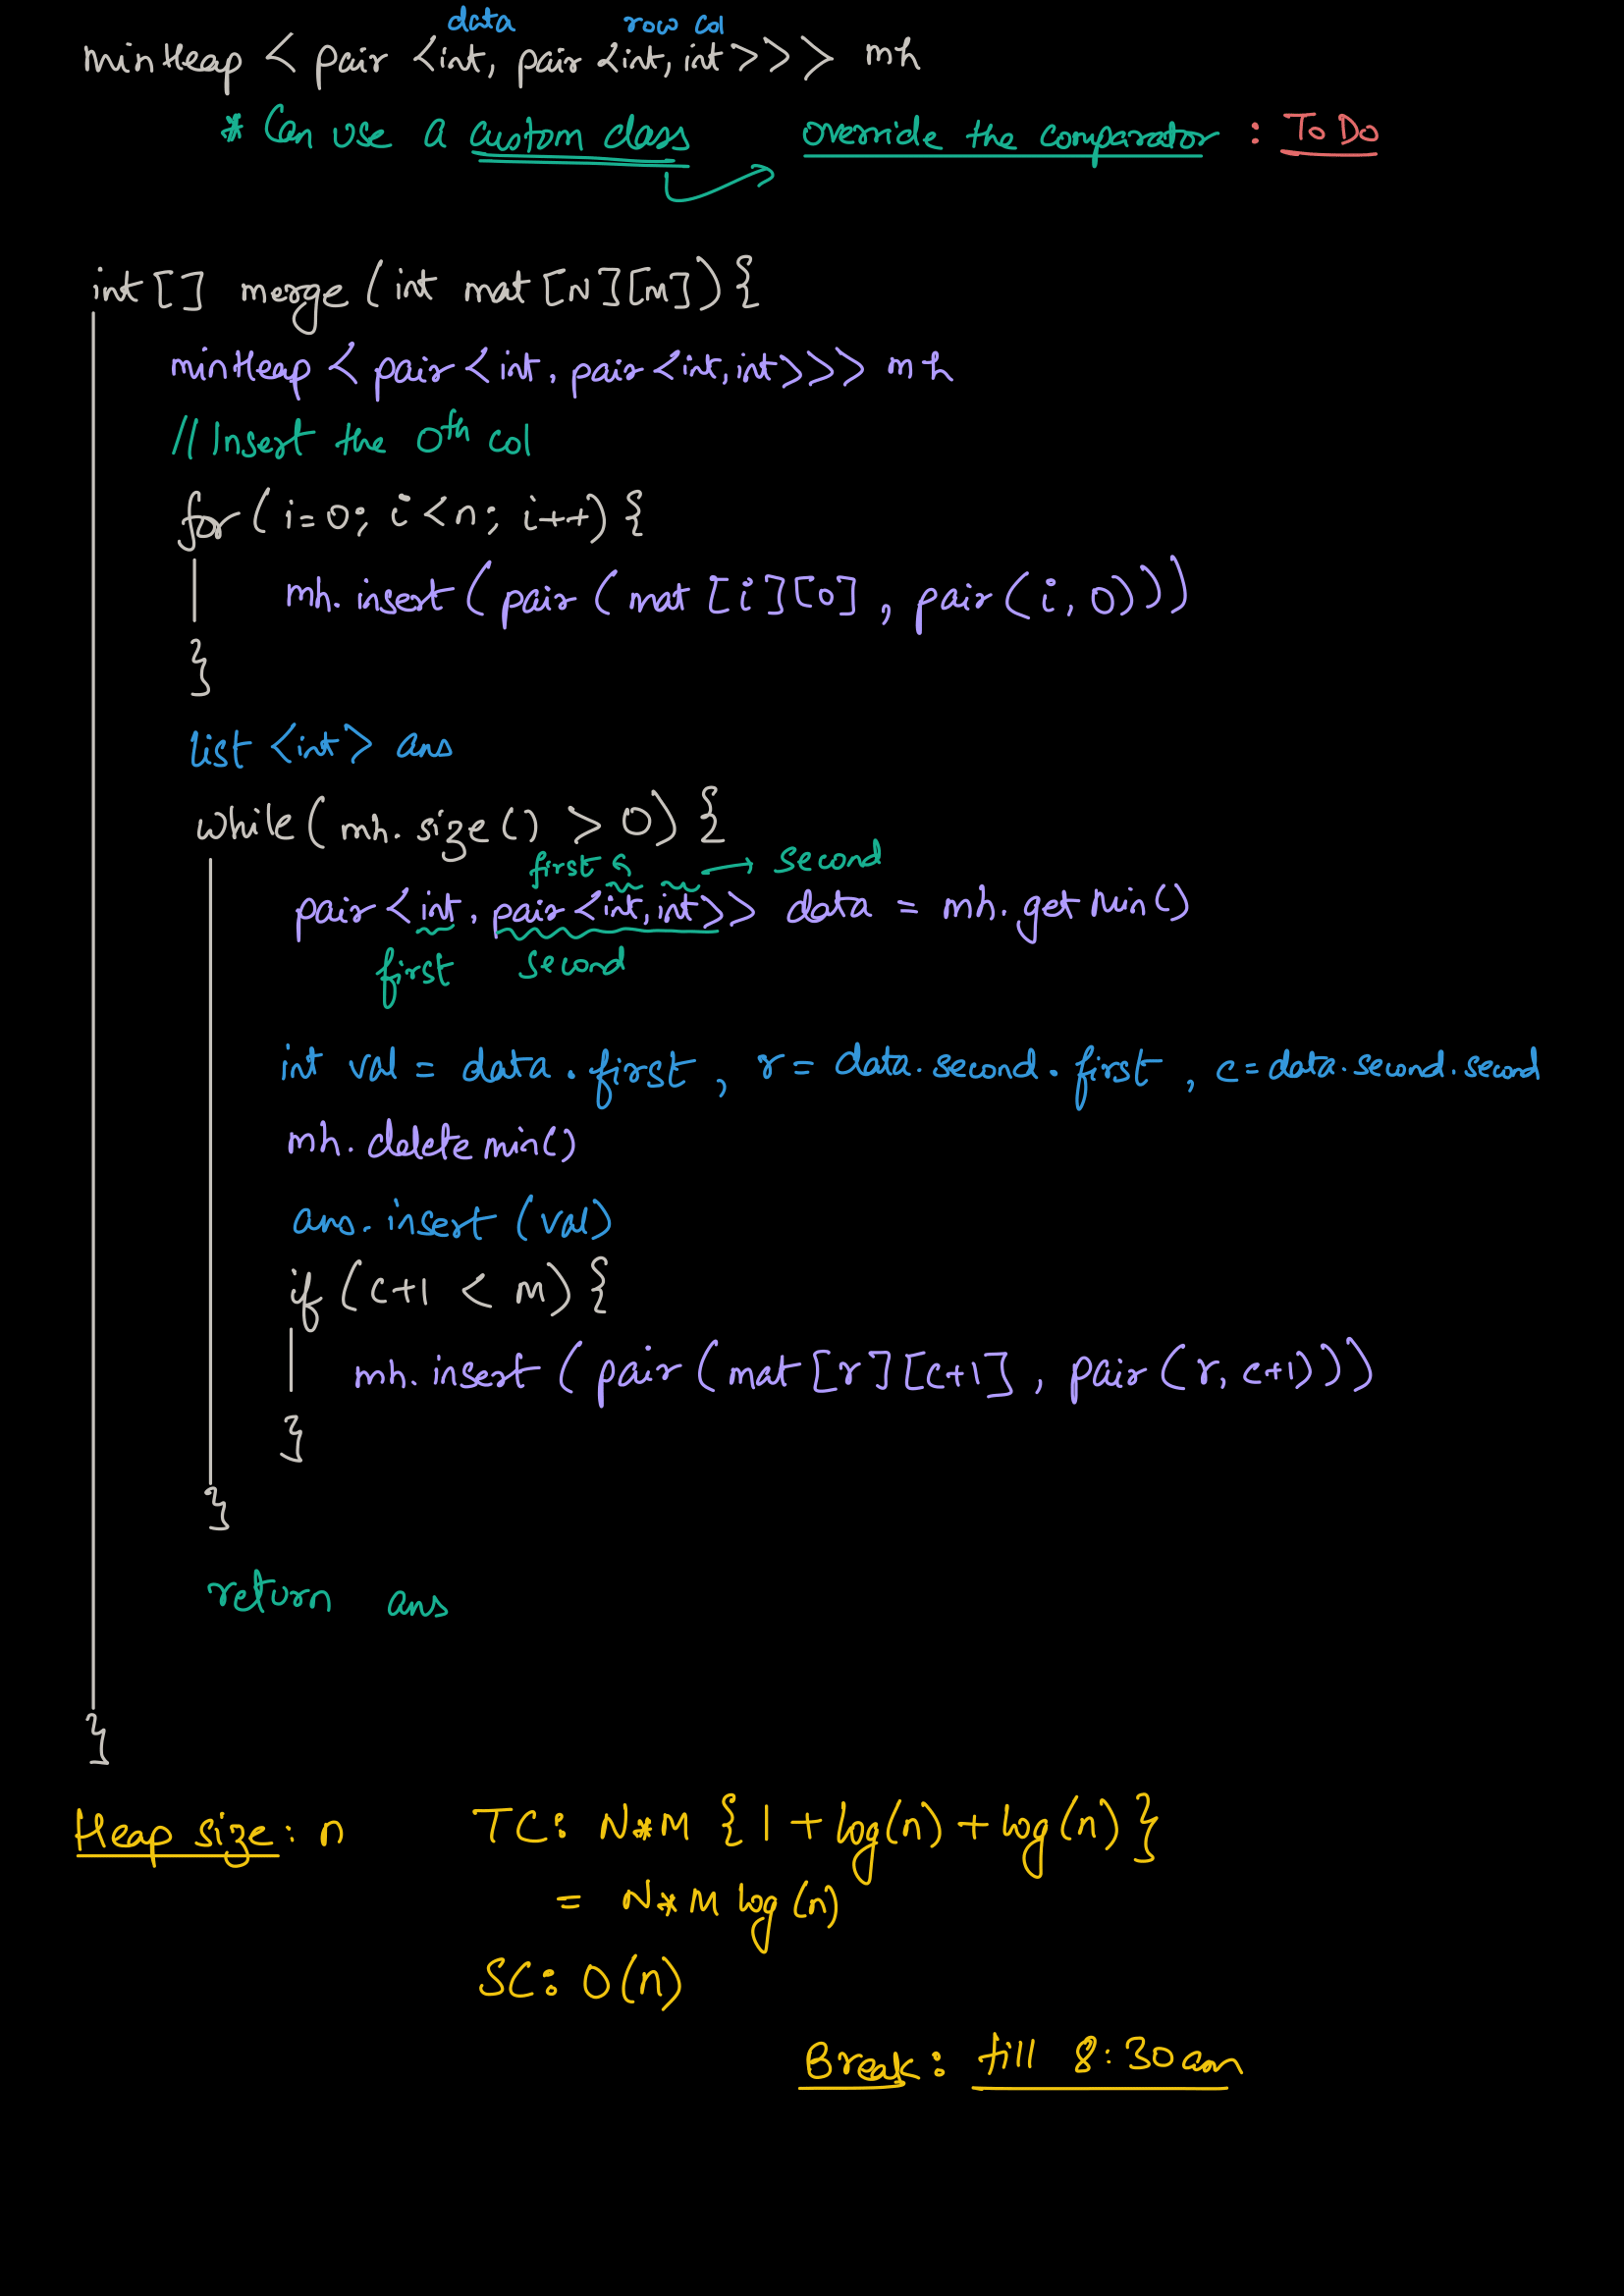 data row col
minHeap < pair <int, pair <int, int>>> mh
* Can use a custom class override the comparator : To Do
int [] merge (int mat [N][M]) {
minHeap < pair < int, pair <int, int>>> mh
// Insert the 0th col
for (i=0; i<n; i++) {
mh. insert (pair (mat [i][0], pair (i, 0)))
}
list <int> ans
while (mh. size () > 0) {
first → second
pair < int, pair <int, int>> data = mh. get Min()
first second
int val = data.first, r = data.second.first, c = data.second.second
mh. delete min()
ans. insert (val)
if (c+1 < m) {
mh. insert (pair (mat [r][c+1], pair (r, c+1)))
}
}
return ans
}
Heap size: n TC: N*M {1 + log(n) + log(n)}
= N*M log (n)
SC: O(n)
Break: till 8:30am